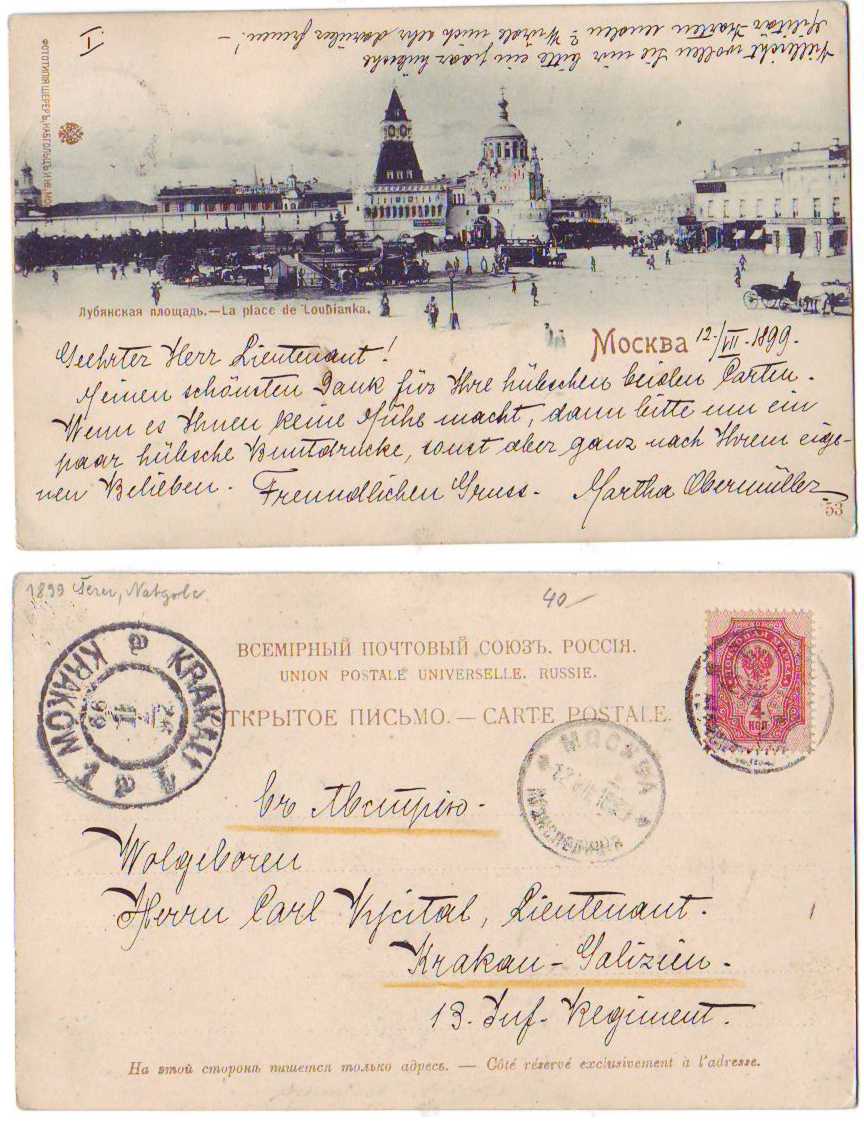 Vielleicht wollen Sie mir bitte ein paar hübsche
Militär-Karten senden? Würde mich sehr darüber freuen! —
I
Лубянская площадь.—La place de Loubianka.
Москва 12/VII. 1899.
Geehrter Herr Lieutenant!
Meinen schönsten Dank für Ihre hübschen beiden Carten.
Wenn es Ihnen keine Mühe macht, dann bitte um ein
paar hübsche Buntdrucke, sonst aber ganz nach Ihrem eige-
nen Belieben. Freundlichen Gruss. Martha Obermüller
53
1899 Šerer, Nabgolc
40
ВСЕМІРНЫЙ ПОЧТОВЫЙ СОЮЗЪ. РОССІЯ.
UNION POSTALE UNIVERSELLE. RUSSIE.
ТКРЫТОЕ ПИСЬМО. — CARTE POSTALE.
KRAKAU 1
KRAKÓW 1
99
4
КОП
МОСКВА
12 VII 1899
въ Австрію.
Wolgeboren
Herrn Carl Lieutenant.
Krakau - Galizien.
13. Inf. Regiment.
На этой сторонѣ пишется только адресъ. — Côté réservé exclusivement à l'adresse.